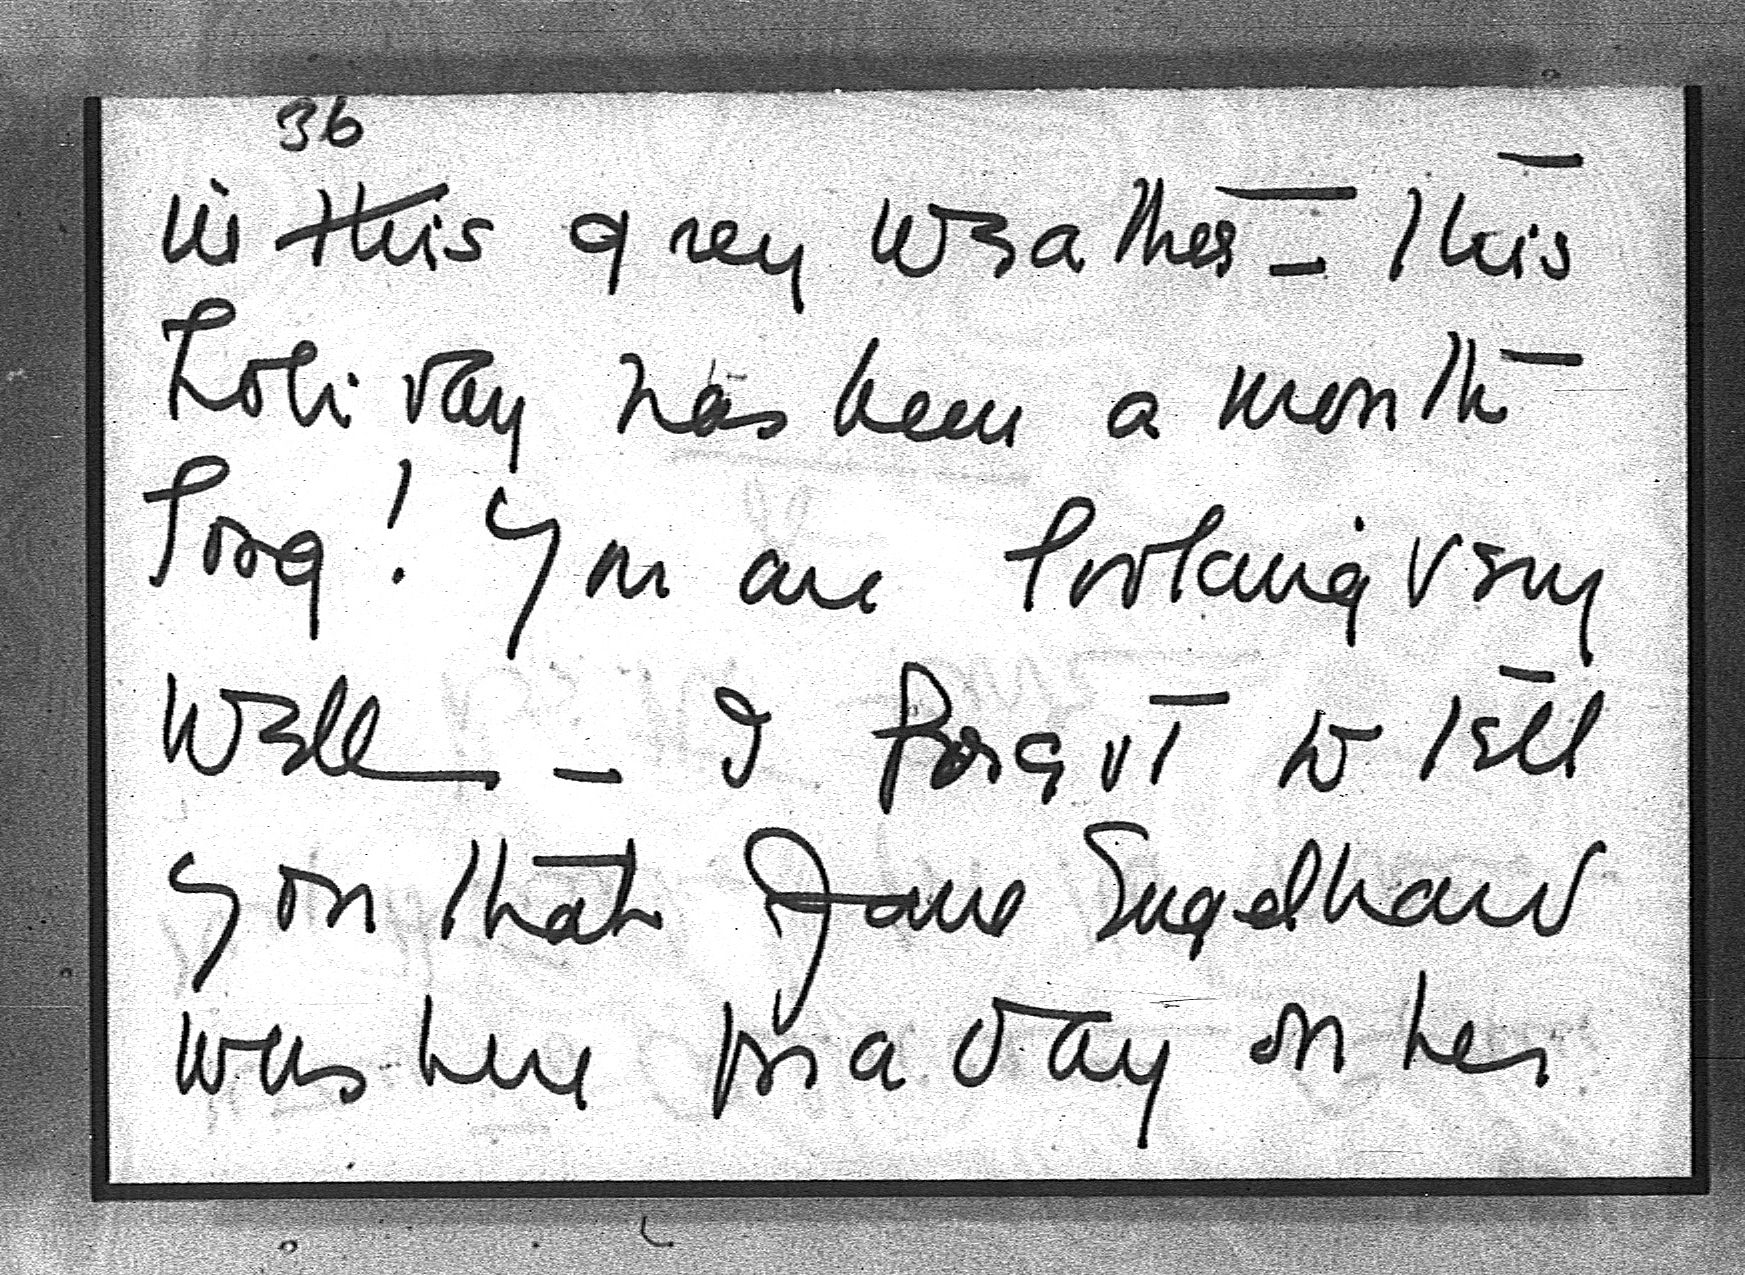 36
in this grey weather – This
holiday has been a month
long! You are looking very
well – I forgot to tell
you that Jane Engelhard
was here for a day on her